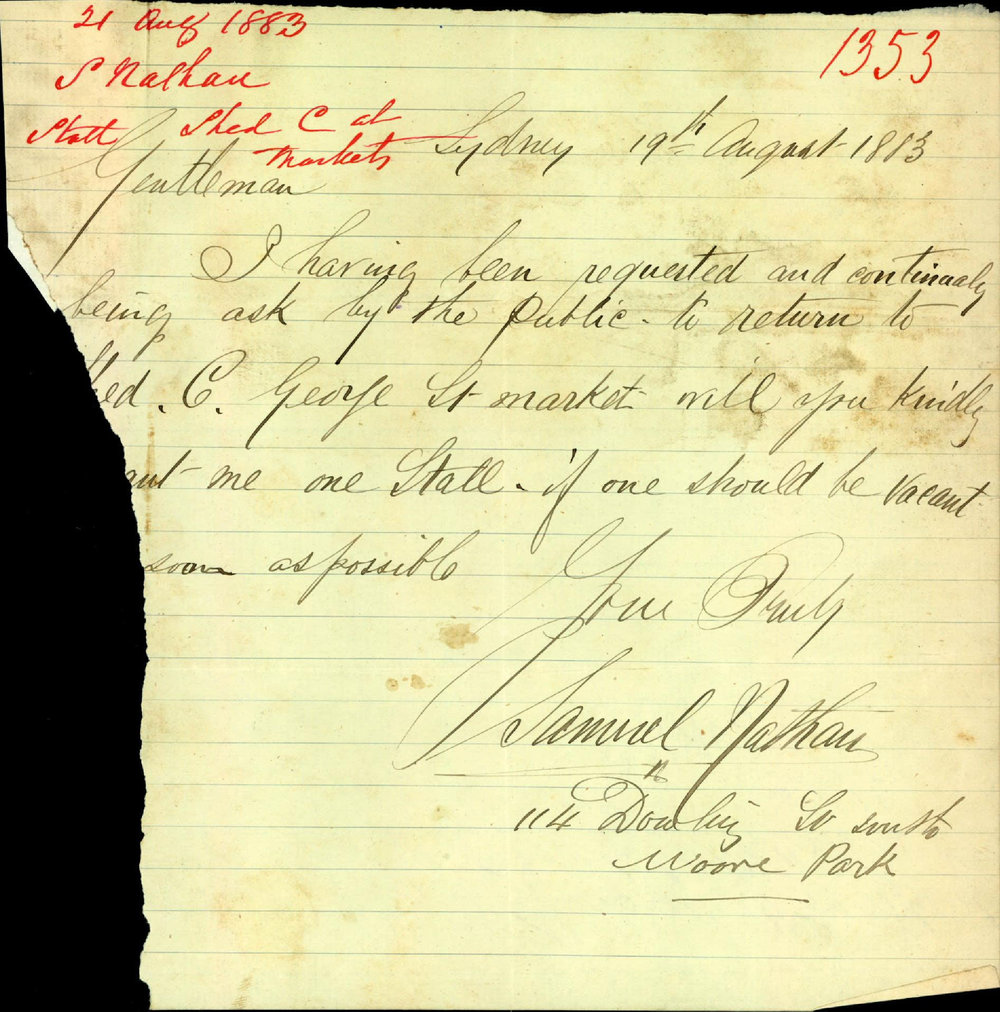 21 Aug 1883
1353
S Nathan
Stall Shed C at
Markets
Sydney 19th August 1883
Gentleman
I having been requested and continualy
being ask by the Public - to return to
hed . C. George St market will you kindly
ant me one Stall - if one should be vacant
soon as possible
Your Truly
Samuel Nathan
114 Dowling St south
Moore Park